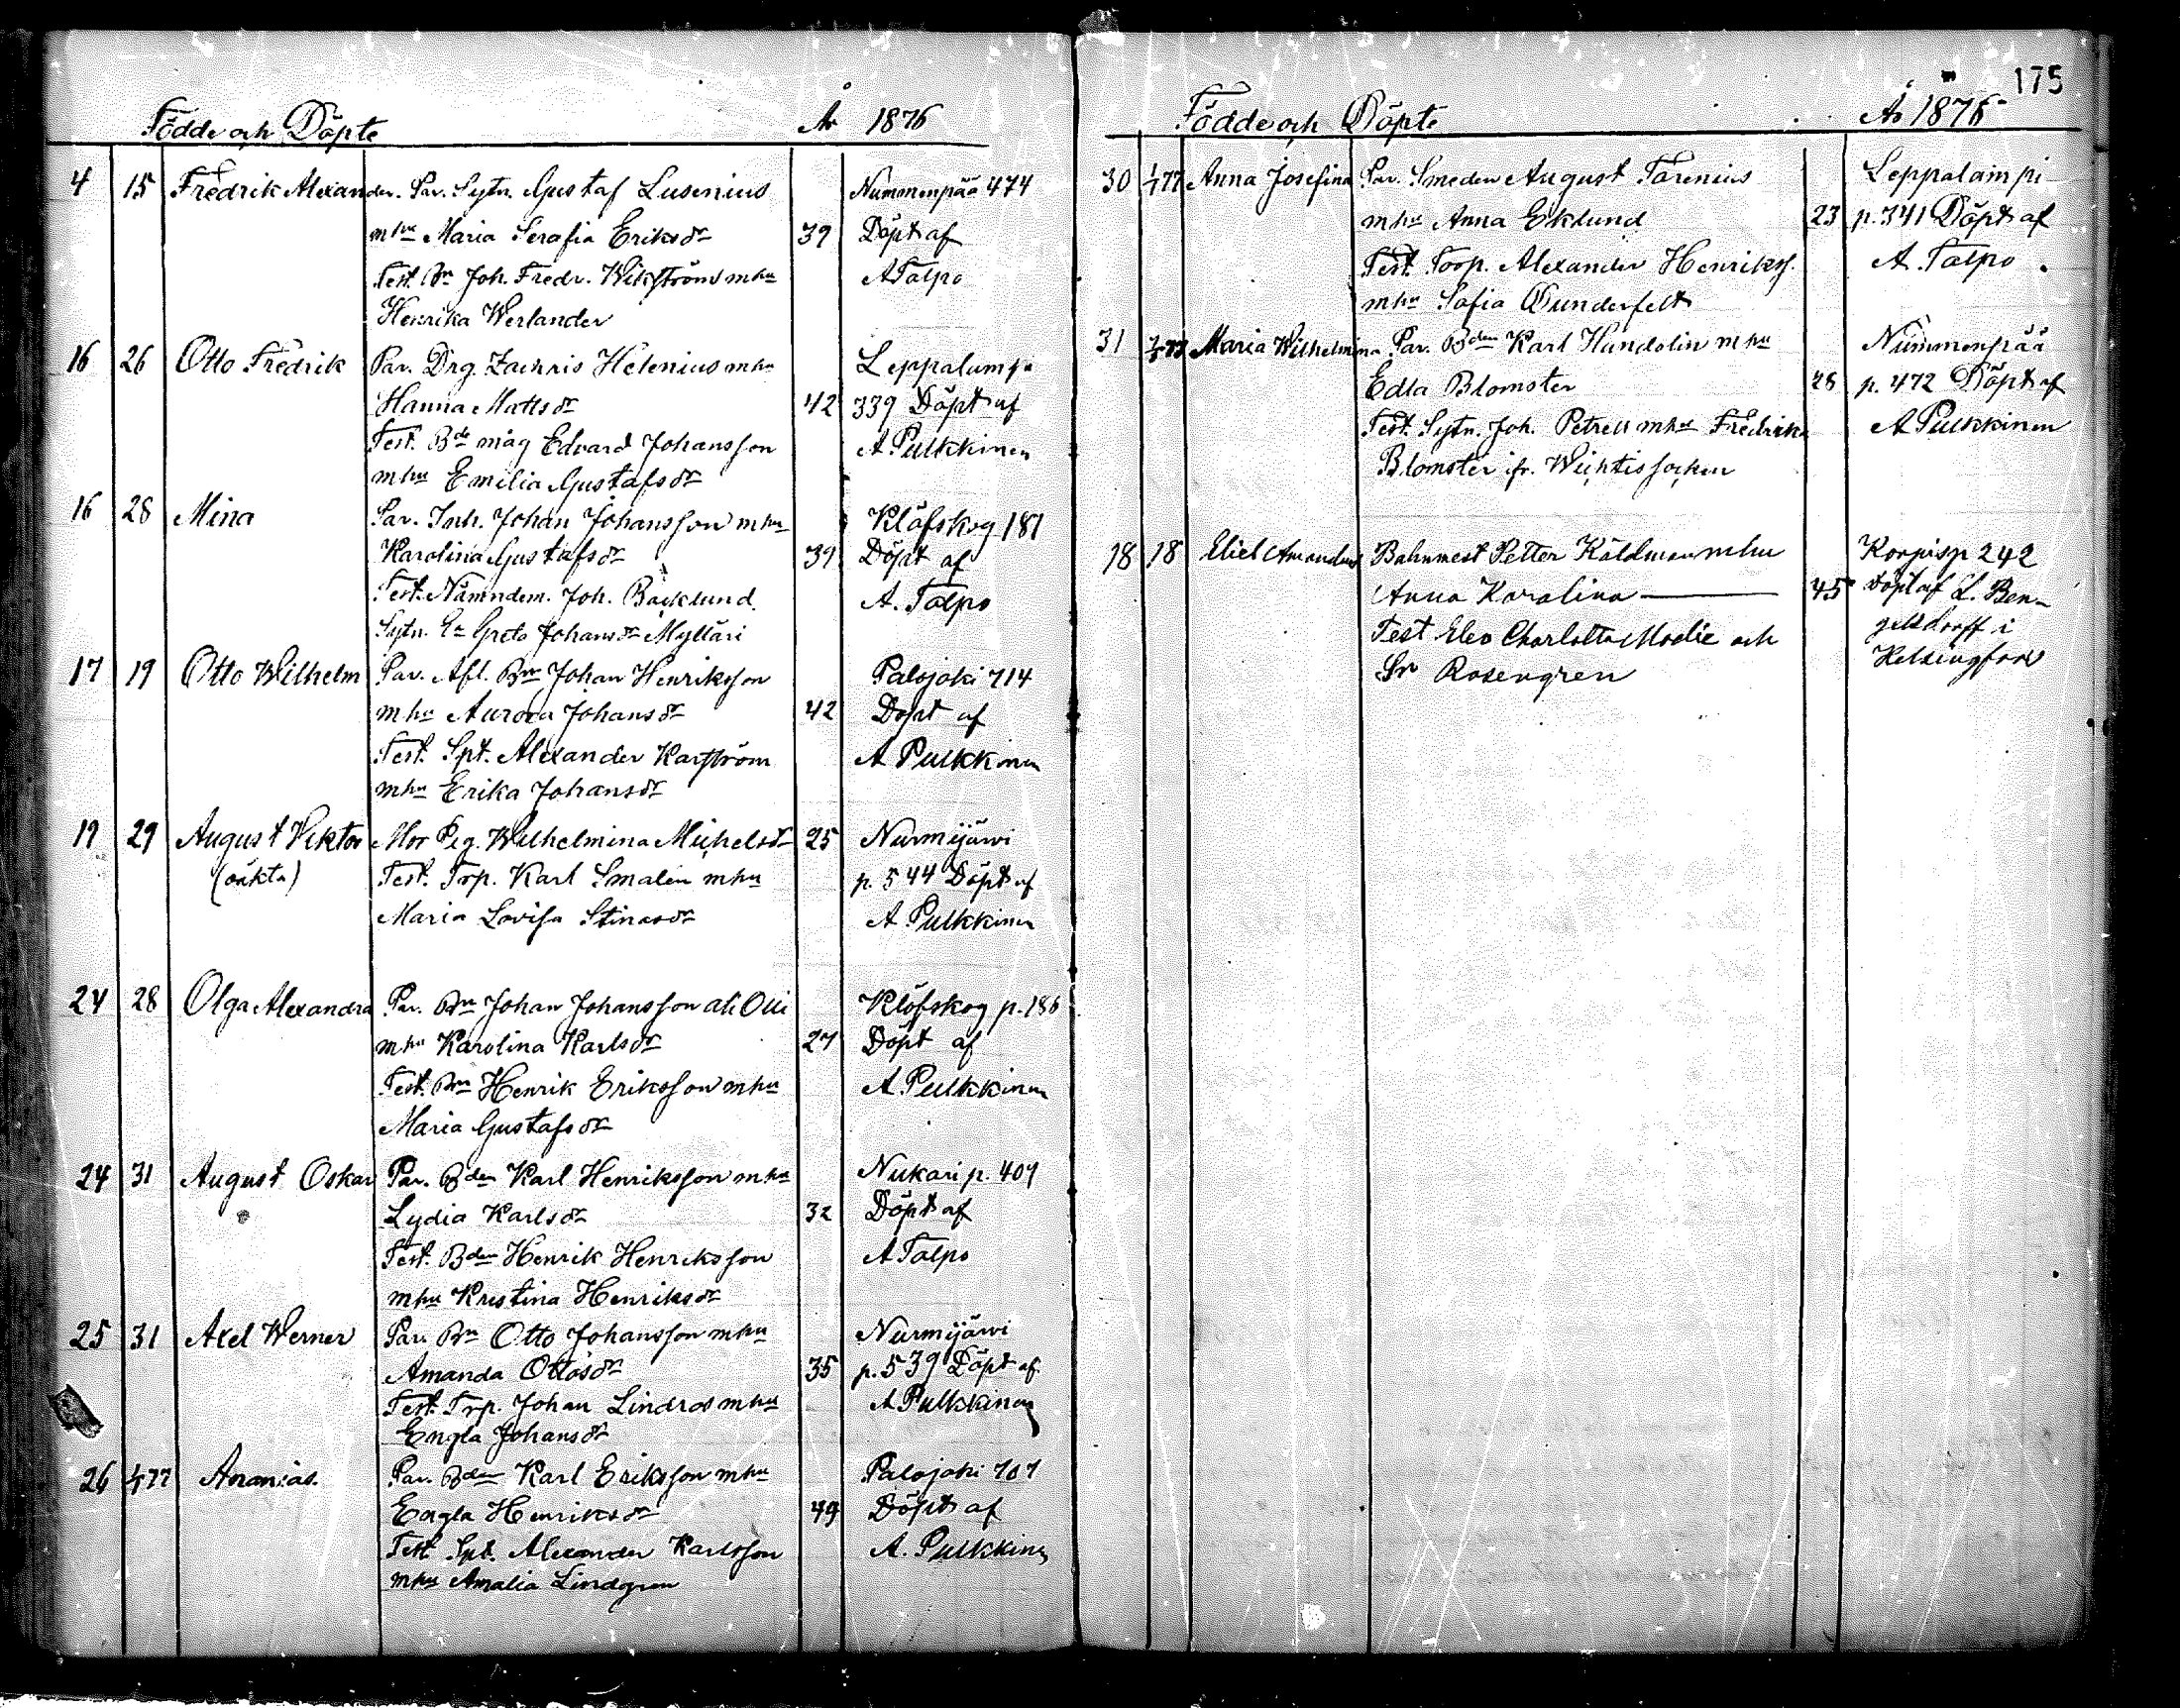 Födde och Döpte År 1876
4 15 Fredrik Alexander. Par. Sytn. Gustaf Lusenius Nummenpää 474
mhu Maria Serafia Eriksdr 39 Döpt af
Test. Bn Joh. Fredr. Wikström mhu A Talpo
Henrika Werlander
16 26 Otto Fredrik Par. Drg. Zachris Helenius mhu Leppalampi
Hanna Mattsdr 42 339 Döpt af
Test. Bde måg Edvard Johansson A Pulkkinen
mhu Emilia Gustafsdr
16 28 Mina Par. Inh. Johan Johansson mhu Klöfskog 181
Karolina Gustafsdr 39 Döpt af
Test. Nämndem. Joh. Bäcklund A. Talpo
Sytn. Ea Greta Johansdr Myllari
17 19 Otto Wilhelm Par. Afl. Bn Johan Henriksson Palojoki 714
mhu Aurora Johansdr 42 Döpt af
Test. Spt. Alexander Karström A Pulkkinen
mhu Erika Johansdr
19 29 August Viktor Mor Pig. Wilhelmina Michelsdr 25 Nurmijärvi
(oäkta) Test. Trp. Karl Smalén mhu p. 544 Döpt af
Maria Lovisa Stinasdr A Pulkkinen
24 28 Olga Alexandra Par. Bn Johan Johansson ali Olli Klöfskog p. 186
mhu Karolina Karlsdr 27 Döpt af
Test. Bn Henrik Eriksson mhu A Pulkkinen
Maria Gustafsdr
24 31 August Oskar Par. Bden Karl Henriksson mhu Nukari p. 409
Lydia Karlsdr 32 Döpt af
Test. Bden Henrik Henriksson A Talpo
mhu Kristina Henriksdr
25 31 Axel Werner Par. Bn Otto Johansson mhu Nurmijärvi
Amanda Ottosdr 35 p. 539 Döpt af
Test. Trp. Johan Lindros mhu A Pulkkinen
Engla Johansdr
26 1/1 77 Ananias. Par. Bden Karl Eriksson mhu Palojoki 707
Engla Henriksdr 49 Döpt af
Test Spt. Alexander Karlsson A. Pulkkinen
mhu Amalia Lindgren
175
Födde och Döpte År 1876
30 1/1 77 Anna Josefina Par. Smeden August Farenius Leppalampi
mhu Anna Eklund 23 p. 341 Döpt af
Test. Torp. Alexander Henrikss. A. Talpo
mhu Sofia Dunderfelt
31 77 Maria Wilhelmina Par. Bden Karl Hundolin mhu Nummenpää
Edla Blomster 28 p. 472 Döpt af
Test. Sytn. Joh. Petrell mhu Fredrika A Pulkkinen
Blomster ifr. Wichtis socken
18 18 Eliel Amandus Bahnmest Petter Käldman mhu Korpisp 242
Anna Karolina 45 Döpt af L. Ben-
Test Elev Charlotta Modie och geldorff i
Sr Rosengren Helsingfors